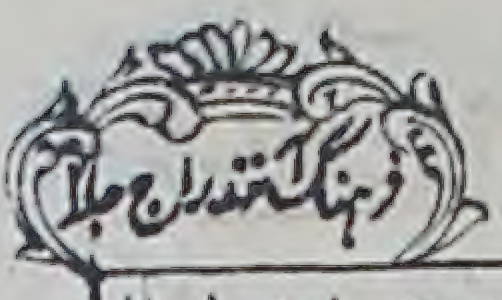 فرہنگ آنندراج جلد ۱